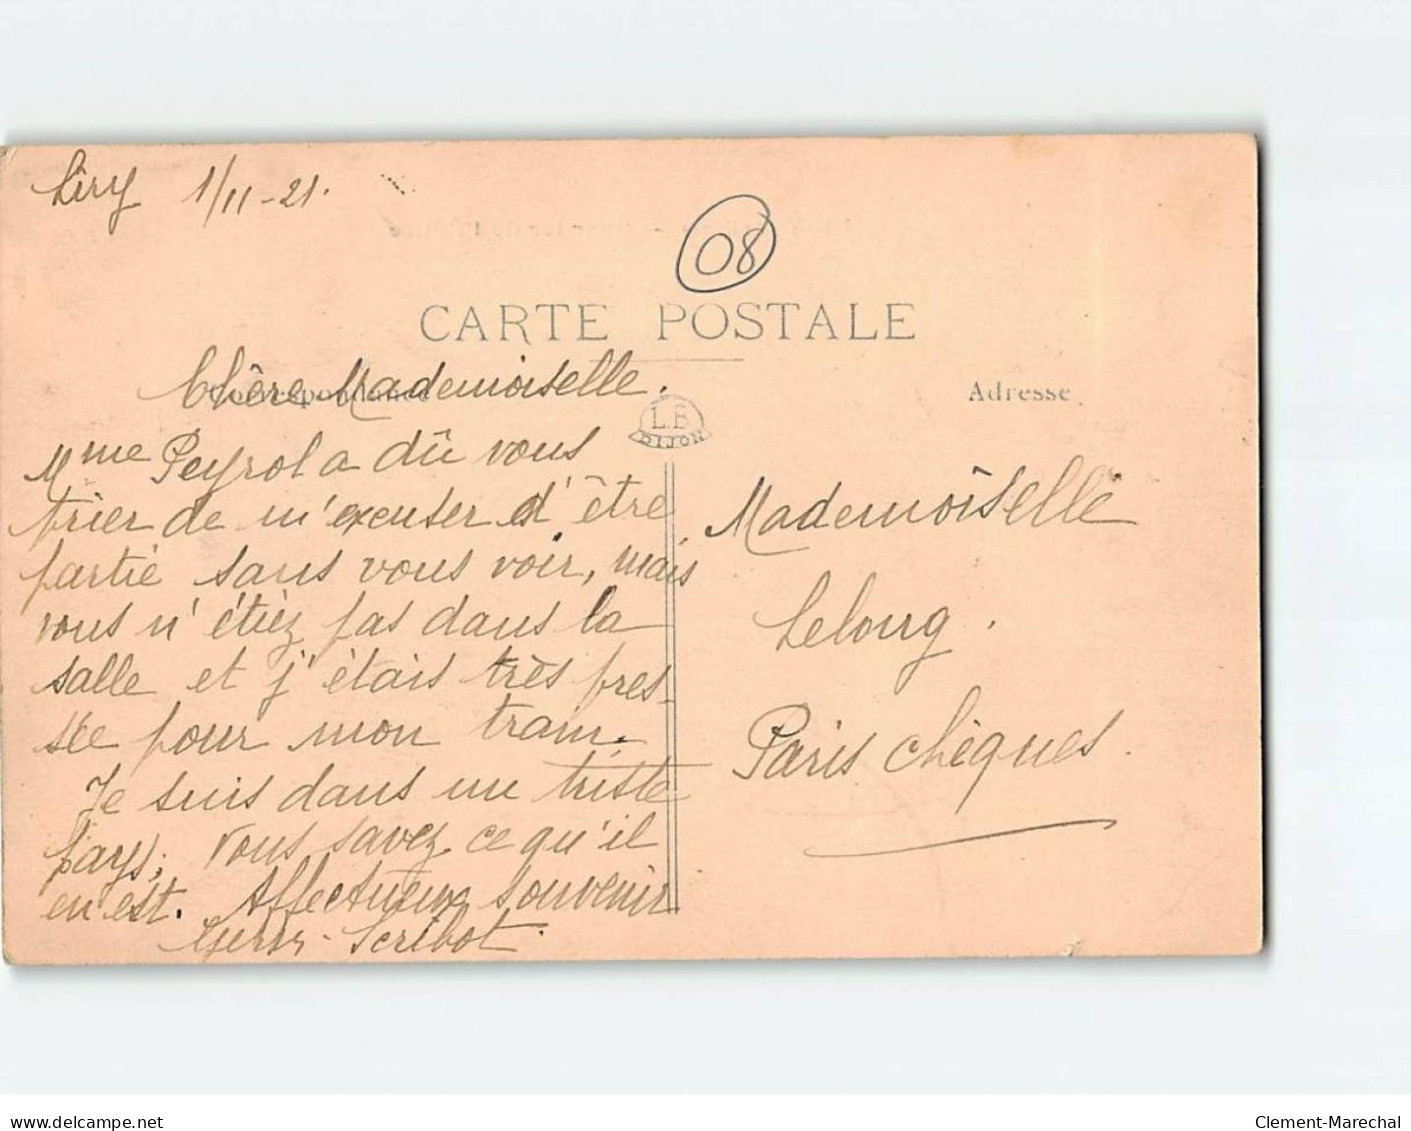 Liry 1/11-21.
08
CARTE POSTALE
Correspondance
Adresse
L.B
DIJON
Chère Mademoiselle.
Mme Peyrol a dû vous
prier de m'excuser d'être
partie sans vous voir, mais
vous n'étiez pas dans la
salle et j'étais très pres-
sée pour mon train.
Je suis dans un triste
pays, vous savez ce qu'il
en est. Affectueux souvenir
Scribot.
Mademoiselle
Lelong.
Paris chèques.
delcampe.net
Clement-Marechal